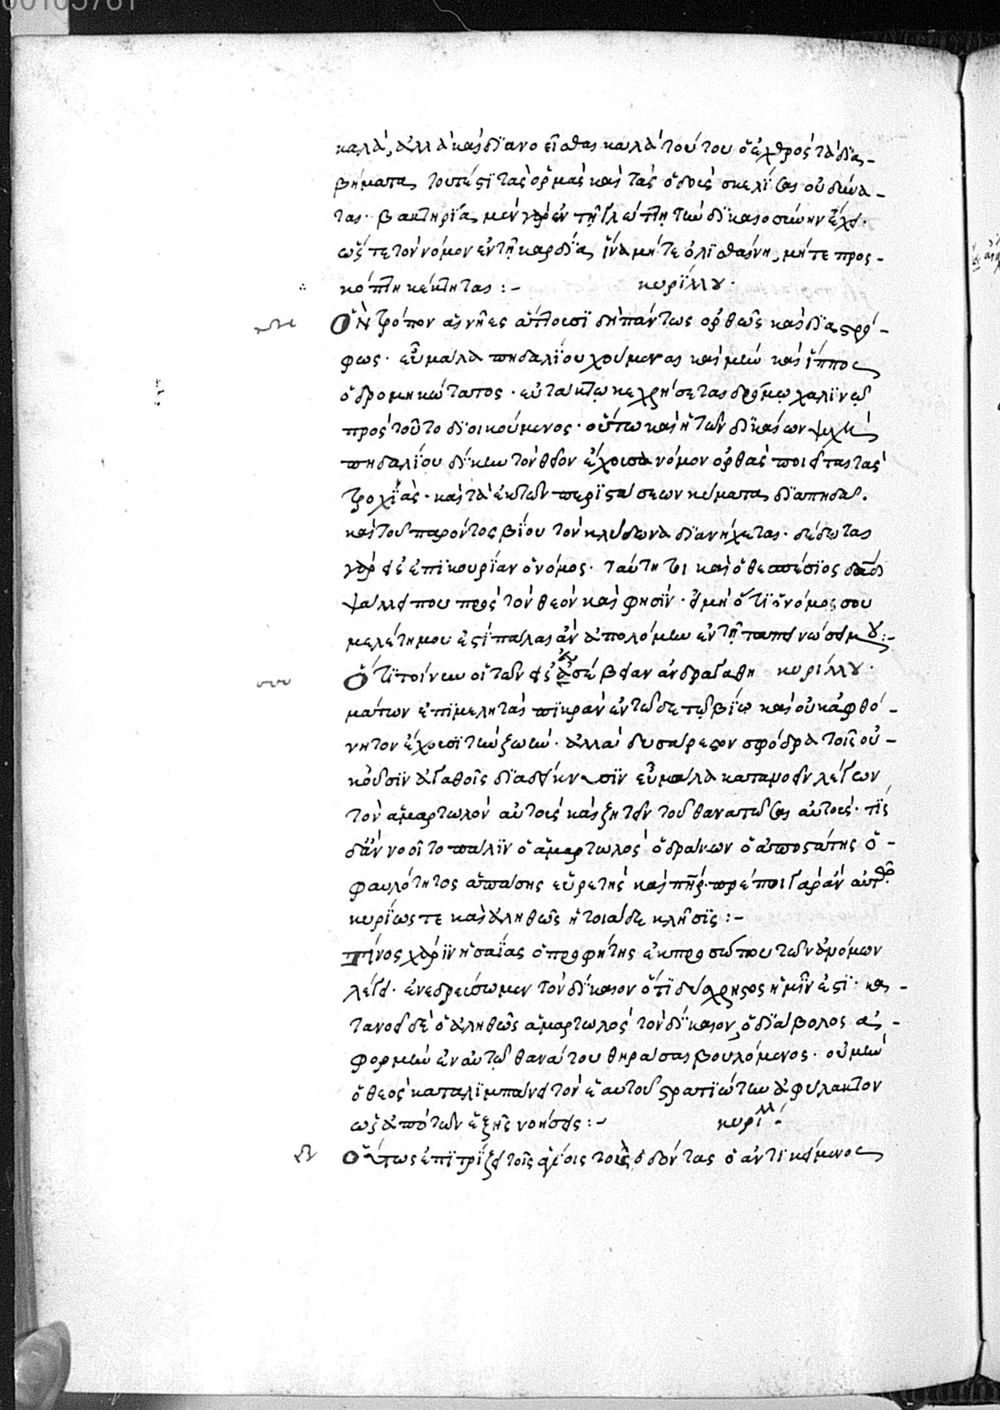 καλὰ, ἀλλὰ καὶ διανοεῖσθαι κατὰ τούτου ὁ ἐχθρὸς τὰ δια-
βήματα, τουτέστι τὰς ὁρμὰς καὶ τὰς ὁδοὺς σκελίσαι οὐ δύνα-
ται· βακτηρίαν μὲν γὰρ ἐν τῇ γλώττῃ τὴν δικαιοσύνην ἔχει·
ὥστε τὸν νόμον ἐν τῇ καρδίᾳ ἵνα μήτε ὀλισθαίνῃ, μήτε προς-
κόπτῃ κέκτηται :- κυρίλλου·
Ὃν τρόπον αἱ νῆες ἅπλοισι δὴ πάντως ὀρθῶς καὶ διαστρό-
φως· εὖ μάλα πηδαλίου χούμεναι καὶ μὲν καὶ ἵππος
ὁ δρομικώτατος· εὐτάκτῳ κεχρήσεται δρόμῳ χαλινῷ
πρὸς τοῦτο διοικούμενος· οὕτω καὶ ἡ τῶν δικαίων ψυχὴ
πηδαλίου δίκην τὸν θεῖον ἔχουσα νόμον ὀρθὰς ποιεῖται τὰς
τροχιάς· καὶ τὰ ἐκ τῶν περιστάσεων κύματα διαπηδᾶ.
καὶ τοῦ παρόντος βίου τὸν κλύδωνα διανήχεται· δέδοται
γὰρ εἰς ἐπικουρίαν ὁ νόμος· ταύτῃ τι καὶ ὁ θεσπέσιος δαδ
ψάλλει που πρὸς τὸν θεὸν καὶ φησίν· εἰ μὴ ὅτι ὁ νόμος σου
μελέτη μου ἐστί πάλαι ἂν ἀπολόμην ἐν τῇ ταπεινώσει μου:-
Ὅτι τοίνυν οἱ τῶν εἰς εὐσέβειαν ἀνδραγαθη κυρίλλου·
μάτων ἐπιμεληταὶ πικρὰν ἐν τῷδε τῷ βίῳ καὶ οὐκ ἀφθό-
νητον ἔχουσι τὴν ζωήν· ἀλλὰ δυσάρεστον σφόδρα τοῖς οὐ-
κ οὖσιν ἀγαθοῖς διαδείκνυσιν εὖ μάλα καταμοεῖν λέγων
τὸν ἁμαρτωλὸν αὐτοὺς καὶ ζητεῖν τοῦ θανατῶσαι αὐτούς· τίς
δ' ἂν νοοῖτο πάλιν ὁ ἁμαρτωλὸς ὁ δράκων ὁ ἀποστάτης ὁ-
φαυλότητος ἁπάσης εὑρετὴς καὶ πὴρ· πρέποι γὰρ ἂν αὐτῷ
κυρίως τε καὶ ἀληθῶς ἡ τοιάδε κλῆσις :-
τίνος χάριν ἡσαΐας ὁ προφήτης ἐκ προσώπου τῶν ἀνόμων
λέγει· ἐνεδρεύσωμεν τὸν δίκαιον ὅτι δύσχρηστος ἡμῖν ἐστί· κα-
τανοεῖ δὲ ὁ ἀληθῶς ἁμαρτωλὸς τὸν δίκαιον, ὁ διάβολος ἀ-
φορμὴν ἐν αὐτῷ θανάτου θηρᾶσαι βουλόμενος· οὐ μὴν
ὁ θεὸς καταλιμπάνει τὸν ἑαυτοῦ στρατιώτην ἀφύλακτον
ὡς ἀπὸ τῶν ἑξῆς νοήσεις :- κυρίλλ·
Οὕτως ἐπιτρίζει τοῖς ἁγίοις τοὺς ὀδόντας ὁ ἀντικείμενος